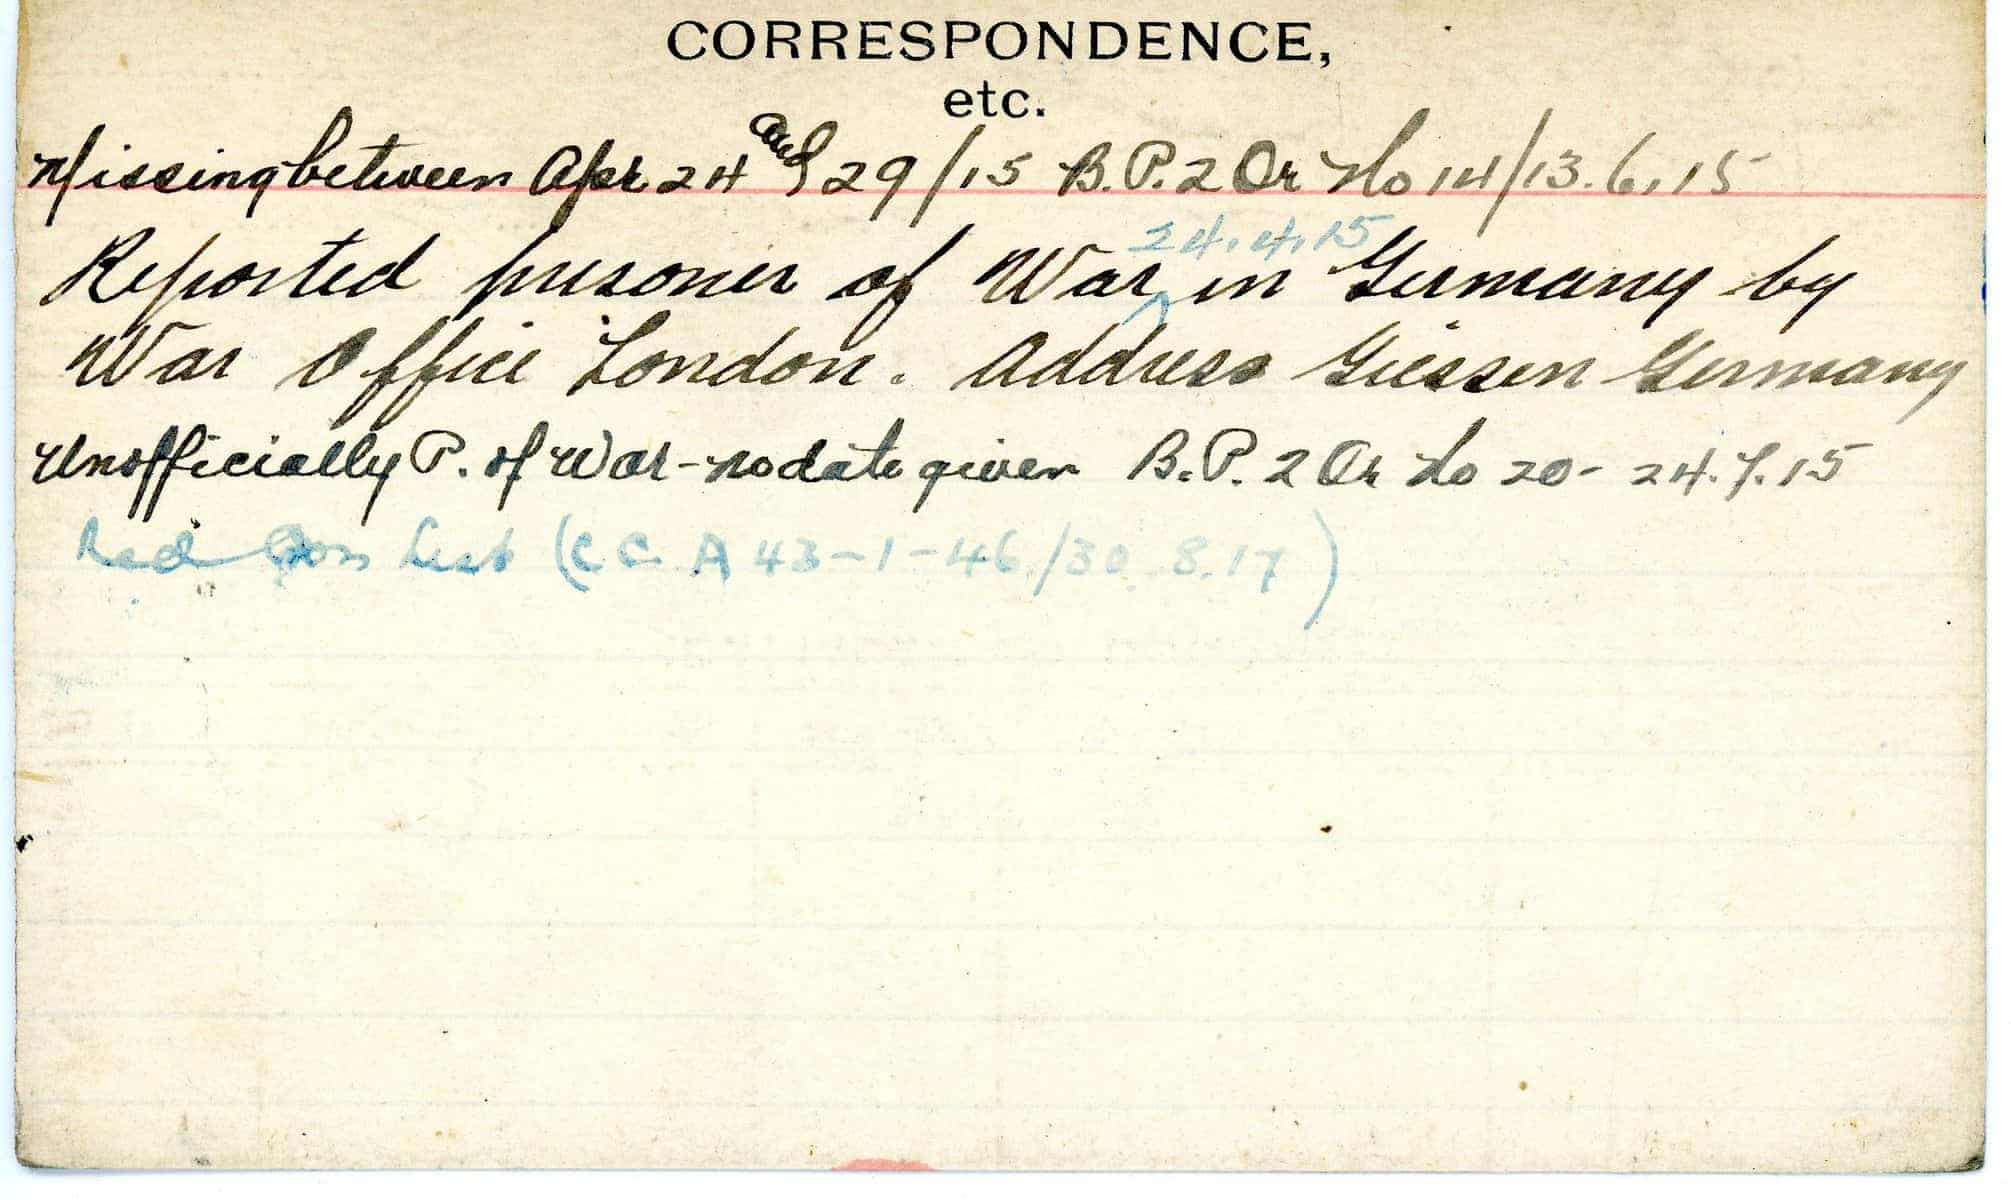 CORRESPONDENCE,
etc.
Missing between Apr 24 and 29/15 B.P. 2 Or No 14/13.6.15
24.4.15
Reported prisoner of War ^ in Germany by
War Office London. Address Giessen Germany
Unofficially P. of War - no date given B.P. 2 Or No 20 - 24.7.15
Red Cross List (C C A 43-1-46/30.8.17)